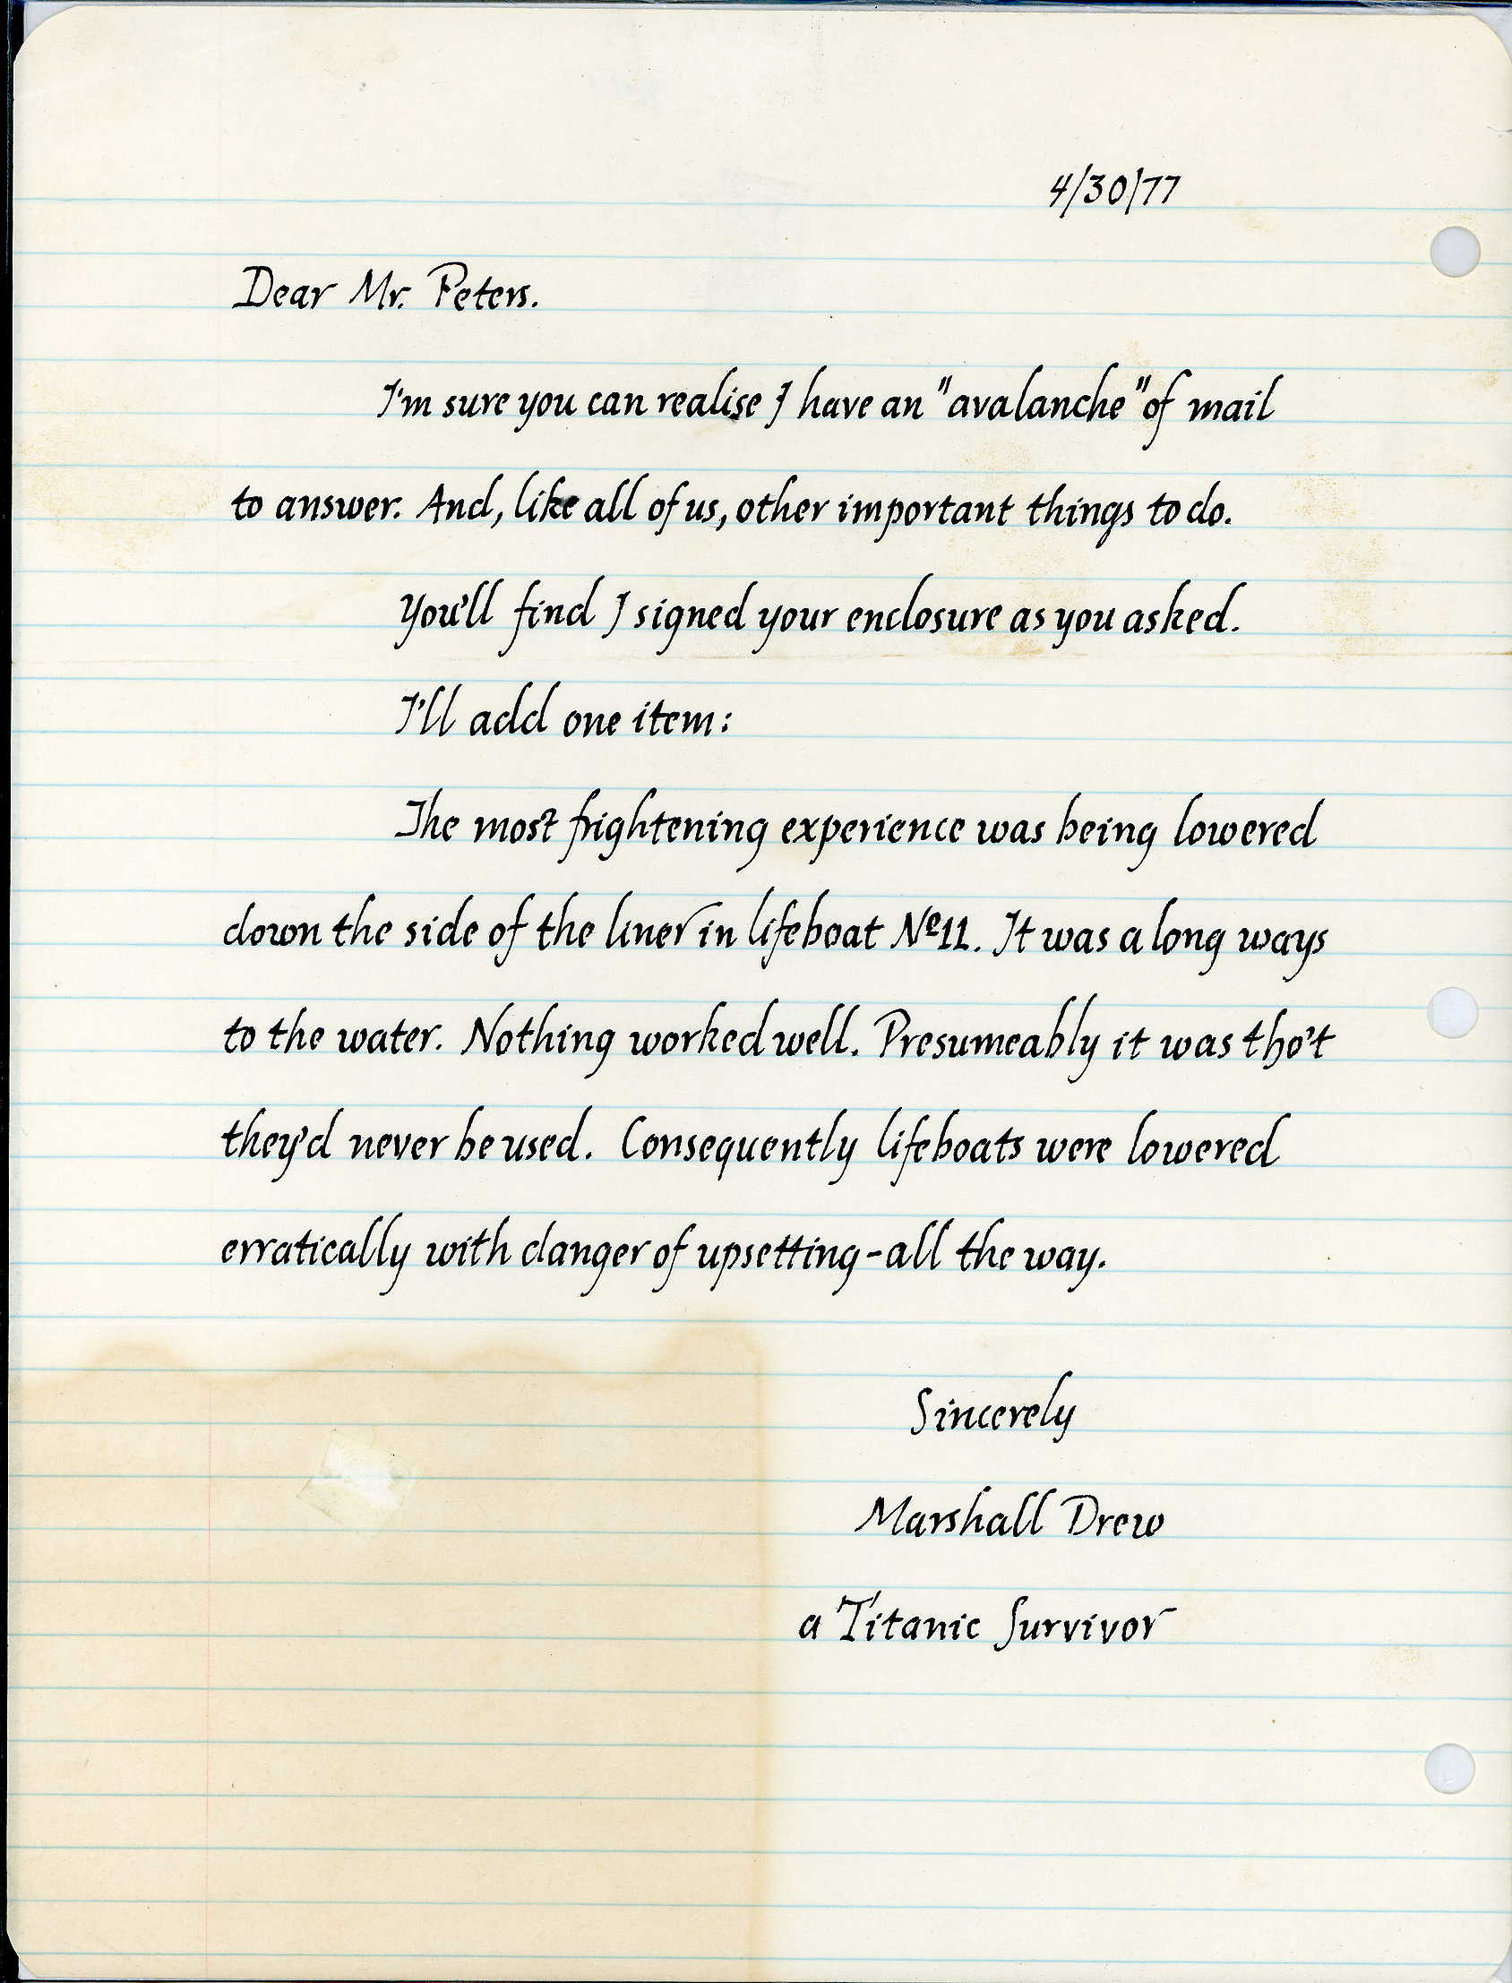 4/30/77
Dear Mr. Peters.
I'm sure you can realise I have an "avalanche" of mail
to answer. And, like all of us, other important things to do.
You'll find I signed your enclosure as you asked.
I'll add one item:
The most frightening experience was being lowered
down the side of the liner in lifeboat Nº11. It was a long ways
to the water. Nothing worked well. Presumeably it was tho't
they'd never be used. Consequently lifeboats were lowered
erratically with danger of upsetting - all the way.
Sincerely
Marshall Drew
a Titanic Survivor